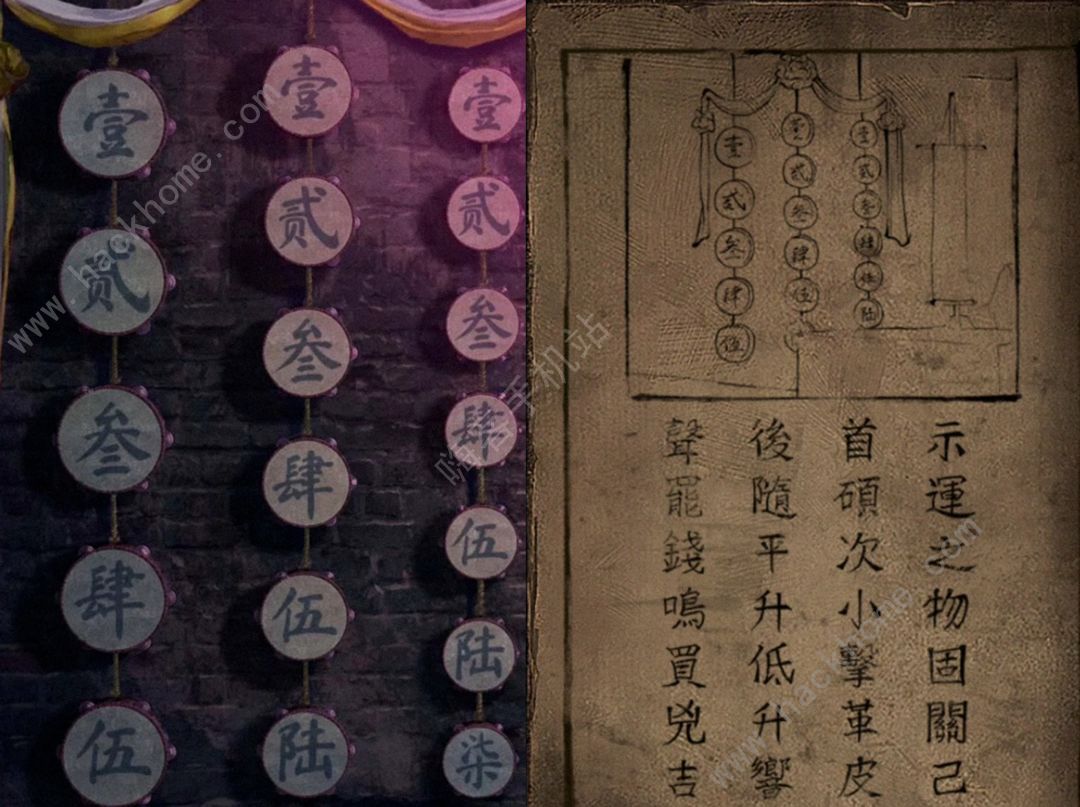 壹贰叁肆伍
壹贰叁肆伍陆
壹贰叁肆伍陆柒
壹弍叁肆伍
壹贰叁肆伍
壹贰叁肆伍陆
示運之物固關己
首碩次小擊革皮
後隨平升低升響
聲罷錢鳴買兇吉
www.hackhome.com
嗨客手机站
www.hackhome.com